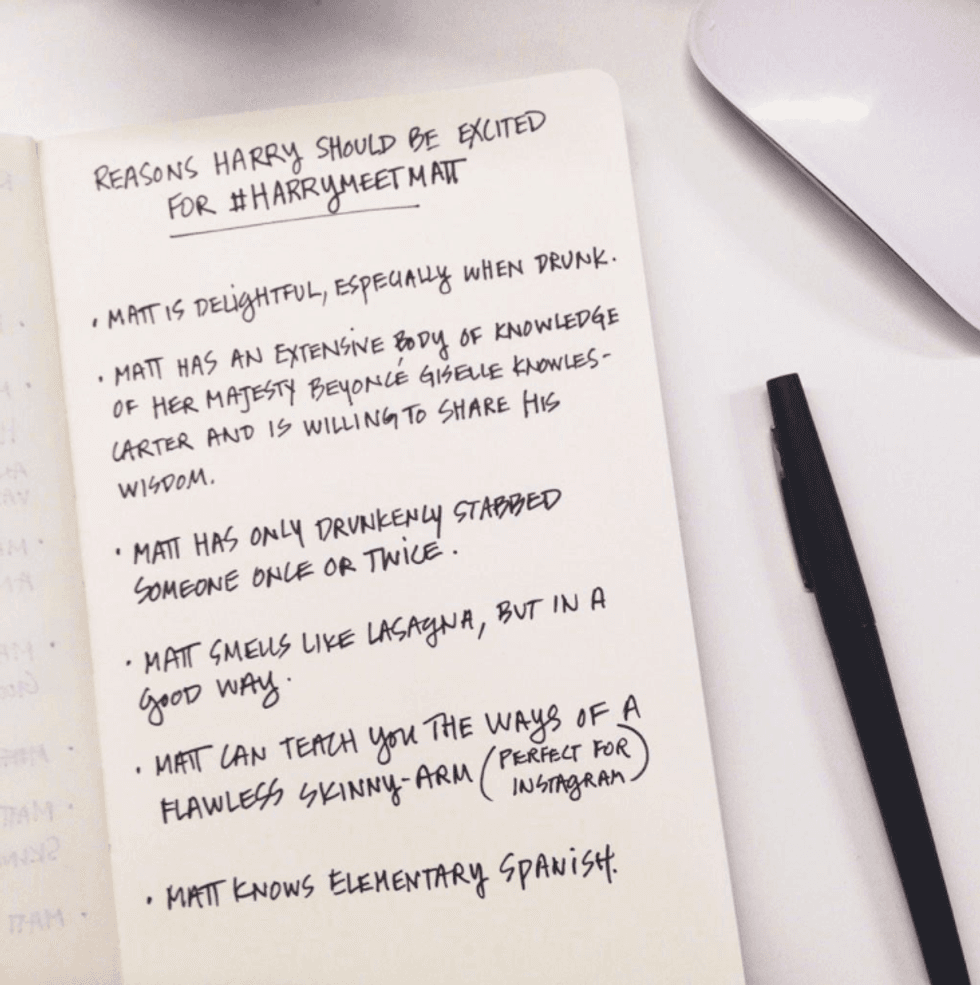 REASONS HARRY SHOULD BE EXCITED
FOR #HARRYMEETMATT
• MATT IS DELIGHTFUL, ESPECIALLY WHEN DRUNK.
• MATT HAS AN EXTENSIVE BODY OF KNOWLEDGE
OF HER MAJESTY BEYONCÉ GISELLE KNOWLES-
CARTER AND IS WILLING TO SHARE HIS
WISDOM.
• MATT HAS ONLY DRUNKENLY STABBED
SOMEONE ONCE OR TWICE.
• MATT SMELLS LIKE LASAGNA, BUT IN A
GOOD WAY.
• MATT CAN TEACH YOU THE WAYS OF A
FLAWLESS SKINNY-ARM (PERFECT FOR
INSTAGRAM)
• MATT KNOWS ELEMENTARY SPANISH.